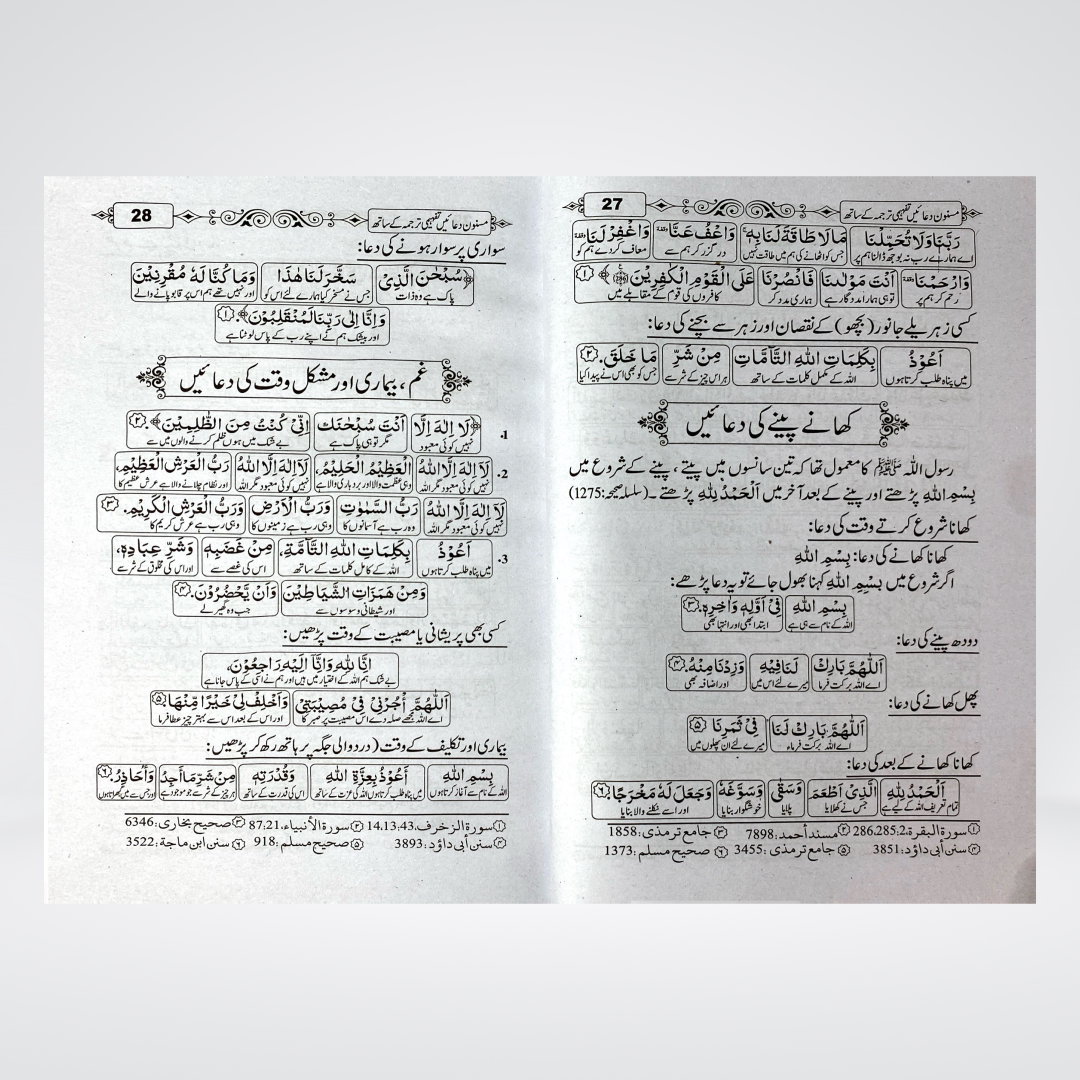 27
مسنون دعائیں تفہیمی ترجمہ کے ساتھ
رَبَّنَا وَلَا تُحَمِّلْنَا مَا لَا طَاقَةَ لَنَا بِهٖ وَاعْفُ عَنَّا وَاغْفِرْ لَنَا
اے ہمارے رب نہ بوجھ ڈالنا ہم پر جس کو اٹھانے کی ہم میں طاقت نہیں در گزر کر ہم سے معاف کر دے ہم کو
وَارْحَمْنَا اَنْتَ مَوْلٰىنَا فَانْصُرْنَا عَلَى الْقَوْمِ الْكٰفِرِيْنَ ﴾ ①
رحم کر ہم پر تو ہی ہمارا مددگار ہے ہماری مدد کر کافروں کی قوم کے مقابلے میں
کسی زہریلے جانور (بچھو) کے نقصان اور زہر سے بچنے کی دعا:
اَعُوْذُ بِكَلِمَاتِ اللهِ التَّآمَّاتِ مِنْ شَرِّ مَا خَلَقَ. ②
میں پناہ طلب کرتا ہوں اللہ کے مکمل کلمات کے ساتھ ہر اس چیز کے شر سے جس کو بھی اس نے پیدا کیا
کھانے پینے کی دعائیں
رسول اللہ ﷺ کا معمول تھا کہ تین سانسوں میں پیتے ، پینے کے شروع میں
بِسْمِ اللهِ پڑھتے اور پینے کے بعد آخر میں اَلْحَمْدُ لِلّٰهِ پڑھتے ۔ (سلسلہ صحیحہ: 1275)
کھانا شروع کرتے وقت کی دعا:
کھانا کھانے کی دعا: بِسْمِ اللهِ
اگر شروع میں بِسْمِ اللهِ کہنا بھول جائے تو یہ دعا پڑھے:
بِسْمِ اللهِ فِيْ اَوَّلِهٖ وَاٰخِرِهٖ. ③
اللہ کے نام سے ہی ہے ابتدا بھی اور انتہا بھی
دودھ پینے کی دعا:
اَللّٰهُمَّ بَارِكْ لَنَا فِيْهِ وَزِدْنَا مِنْهُ. ④
اے اللہ برکت فرما میرے لئے اس میں اور اضافہ بھی
پھل کھانے کی دعا:
اَللّٰهُمَّ بَارِكْ لَنَا فِيْ ثَمَرِنَا ⑤
اے اللہ برکت فرماء میرے لئے ان پھلوں میں
کھانا کھانے کے بعد کی دعا:
اَلْحَمْدُ لِلّٰهِ الَّذِيْ اَطْعَمَ وَسَقٰى وَسَوَّغَهٗ وَجَعَلَ لَهٗ مَخْرَجًا. ⑥
تمام تعریف اللہ کے لیے ہے جس نے کھلایا پلایا خوشگوار بنایا اور اسے نکلنے والا بنایا
① سورة البقرة، 286,285:2 ② مسند أحمد: 7898 ③ جامع ترمذی: 1858
④ سنن أبی داؤد: 3851 ⑤ جامع ترمذی: 3455 ⑥ صحیح مسلم: 1373
28
مسنون دعائیں تفہیمی ترجمہ کے ساتھ
سواری پر سوار ہونے کی دعا:
﴿سُبْحٰنَ الَّذِيْ سَخَّرَ لَنَا هٰذَا وَمَا كُنَّا لَهٗ مُقْرِنِيْنَ
پاک ہے وہ ذات جس نے مسخر کیا ہمارے لئے اس کو اور نہیں تھے ہم اس پر قابو پانے والے
وَاِنَّا اِلٰى رَبِّنَا لَمُنْقَلِبُوْنَ﴾. ①
اور بیشک ہم کے اپنے رب کے پاس لوٹنا ہے
غم ، بیماری اور مشکل وقت کی دعائیں
1. ﴿لَا اِلٰهَ اِلَّا اَنْتَ سُبْحٰنَكَ اِنِّيْ كُنْتُ مِنَ الظّٰلِمِيْنَ﴾. ②
نہیں کوئی معبود مگر تو ہی پاک ہے بے شک میں ہوں ظلم کرنے والوں میں سے
2. لَآ اِلٰهَ اِلَّا اللهُ الْعَظِيْمُ الْحَلِيْمُ، لَآ اِلٰهَ اِلَّا اللهُ رَبُّ الْعَرْشِ الْعَظِيْمِ،
نہیں کوئی معبود مگر اللہ وہی عظمت والا اور بردباری والا ہے نہیں کوئی معبود مگر اللہ اور نظام چلانے والا ہے عرش عظیم کا
لَآ اِلٰهَ اِلَّا اللهُ رَبُّ السَّمٰوٰتِ وَرَبُّ الْاَرْضِ وَرَبُّ الْعَرْشِ الْكَرِيْمِ. ③
نہیں کوئی معبود مگر اللہ وہ رب ہے آسمانوں کا وہی رب ہے زمینوں کا وہی رب ہے عرش کریم کا
3. اَعُوْذُ بِكَلِمَاتِ اللهِ التَّآمَّةِ، مِنْ غَضَبِهٖ وَشَرِّ عِبَادِهٖ،
میں پناہ طلب کرتا ہوں اللہ کے کامل کلمات کے ساتھ اس کی غصے سے اور اس کی مخلوق کے شر سے
وَمِنْ هَمَزَاتِ الشَّيَاطِيْنَ وَاَنْ يَّحْضُرُوْنَ. ④
اور شیطانی وسوسوں سے جب وہ گھیر لے
کسی بھی پریشانی یا مصیبت کے وقت پڑھیں:
اِنَّا لِلّٰهِ وَاِنَّآ اِلَيْهِ رَاجِعُوْنَ،
بے شک ہم اللہ کے اختیار میں ہیں اور ہم نے اسی کے پاس جانا ہے
اَللّٰهُمَّ أْجُرْنِيْ فِيْ مُصِيْبَتِيْ وَاَخْلِفْ لِيْ خَيْرًا مِّنْهَا ⑤
اے اللہ مجھے صلہ دے اس مصیبت پر صبر کا اور اس کے بعد اس سے بہتر چیز عطا فرما
بیماری اور تکلیف کے وقت (درد والی جگہ پر ہاتھ رکھ کر پڑھیں:
بِسْمِ اللهِ اَعُوْذُ بِعِزَّةِ اللهِ وَقُدْرَتِهٖ مِنْ شَرِّ مَا اَجِدُ وَاُحَاذِرُ. ⑥
اللہ کے نام سے آغاز کرتا ہوں میں پناہ طلب کرتا ہوں اللہ کی عزت کے ساتھ اس کی قدرت کے ساتھ ہر چیز کے شر سے جو موجود ہے اور جس سے میں گھبراتا ہوں
① سورة الزخرف، 14,13:43 ② سورة الأنبیاء، 87:21 ③ صحیح بخاری: 6346
④ سنن أبی داؤد: 3893 ⑤ صحیح مسلم: 918 ⑥ سنن ابن ماجة: 3522